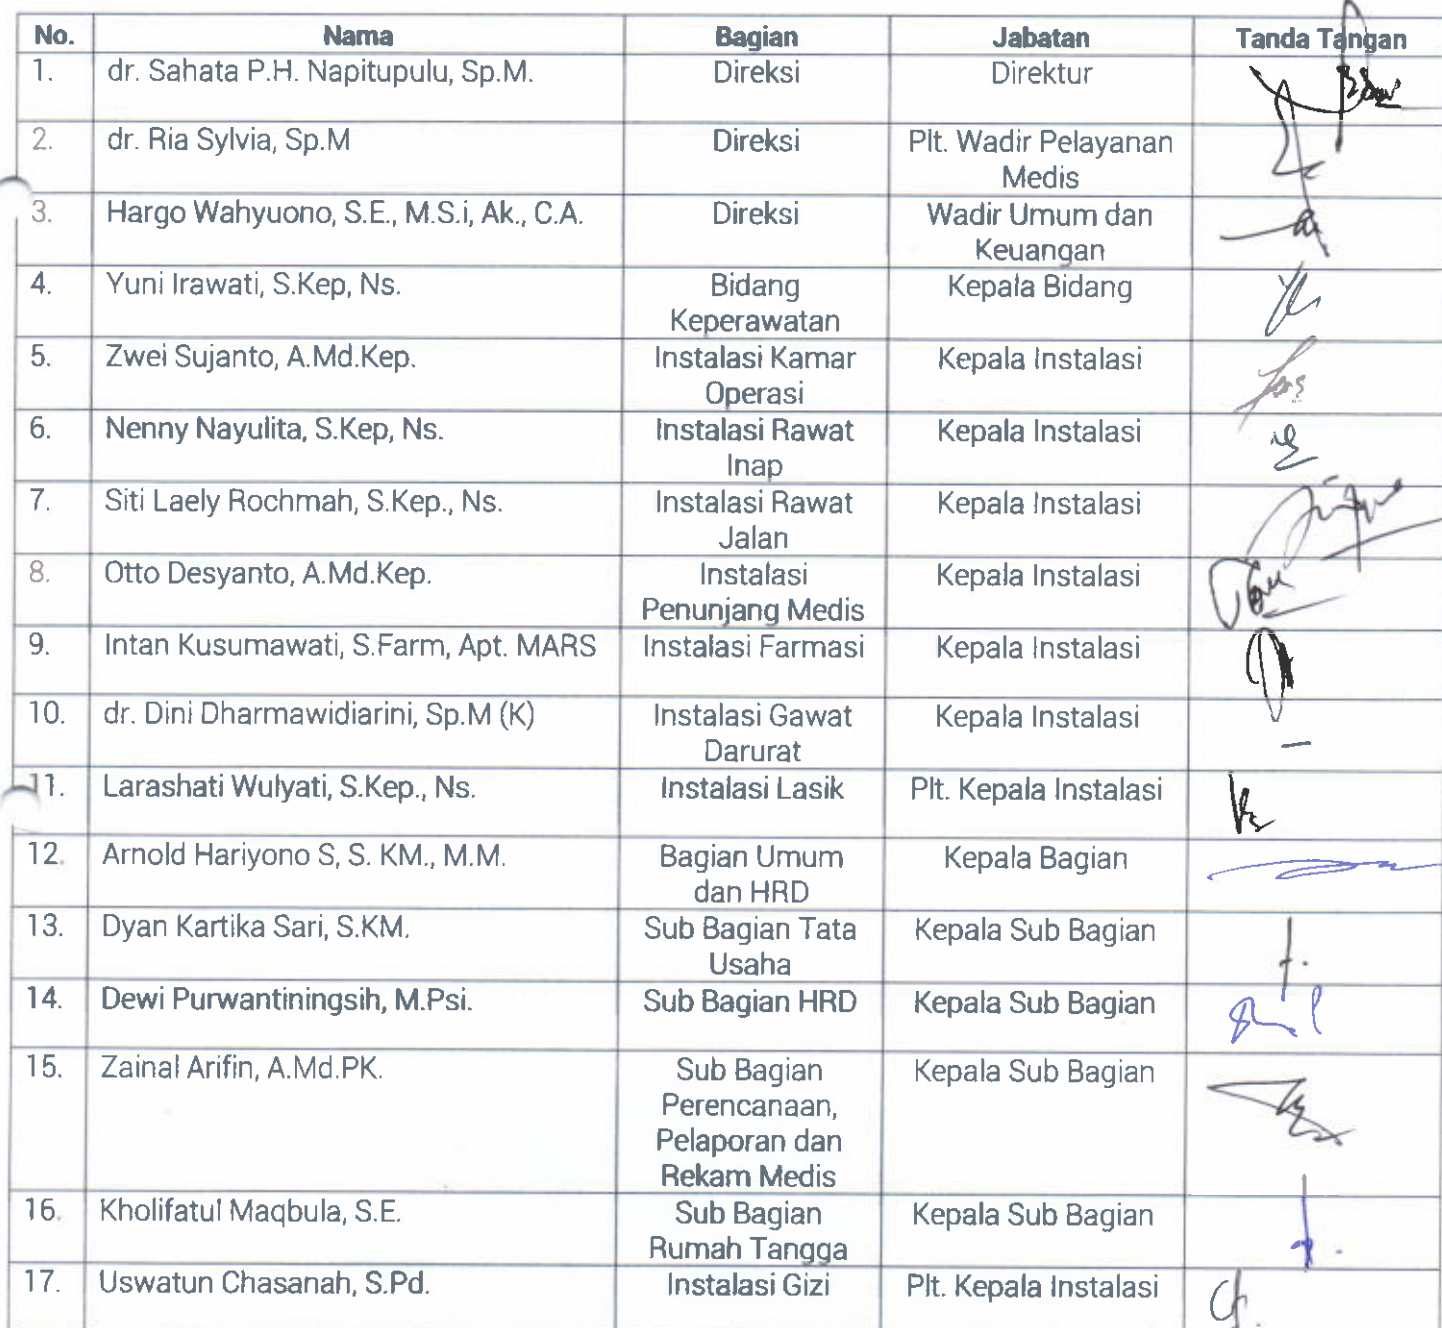 No. Nama Bagian Jabatan Tanda Tangan
1. dr. Sahata P.H. Napitupulu, Sp.M. Direksi Direktur
2. dr. Ria Sylvia, Sp.M Direksi Plt. Wadir Pelayanan
Medis
3. Hargo Wahyuono, S.E., M.S.i, Ak., C.A. Direksi Wadir Umum dan
Keuangan
4. Yuni Irawati, S.Kep, Ns. Bidang Kepala Bidang
Keperawatan
5. Zwei Sujanto, A.Md.Kep. Instalasi Kamar Kepala Instalasi
Operasi
6. Nenny Nayulita, S.Kep, Ns. Instalasi Rawat Kepala Instalasi
Inap
7. Siti Laely Rochmah, S.Kep., Ns. Instalasi Rawat Kepala Instalasi
Jalan
8. Otto Desyanto, A.Md.Kep. Instalasi Kepala Instalasi
Penunjang Medis
9. Intan Kusumawati, S.Farm, Apt. MARS Instalasi Farmasi Kepala Instalasi
10. dr. Dini Dharmawidiarini, Sp.M (K) Instalasi Gawat Kepala Instalasi
Darurat
11. Larashati Wulyati, S.Kep., Ns. Instalasi Lasik Plt. Kepala Instalasi
12. Arnold Hariyono S, S. KM., M.M. Bagian Umum Kepala Bagian
dan HRD
13. Dyan Kartika Sari, S.KM. Sub Bagian Tata Kepala Sub Bagian
Usaha
14. Dewi Purwantiningsih, M.Psi. Sub Bagian HRD Kepala Sub Bagian
15. Zainal Arifin, A.Md.PK. Sub Bagian Kepala Sub Bagian
Perencanaan,
Pelaporan dan
Rekam Medis
16. Kholifatul Maqbula, S.E. Sub Bagian Kepala Sub Bagian
Rumah Tangga
17. Uswatun Chasanah, S.Pd. Instalasi Gizi Plt. Kepala Instalasi